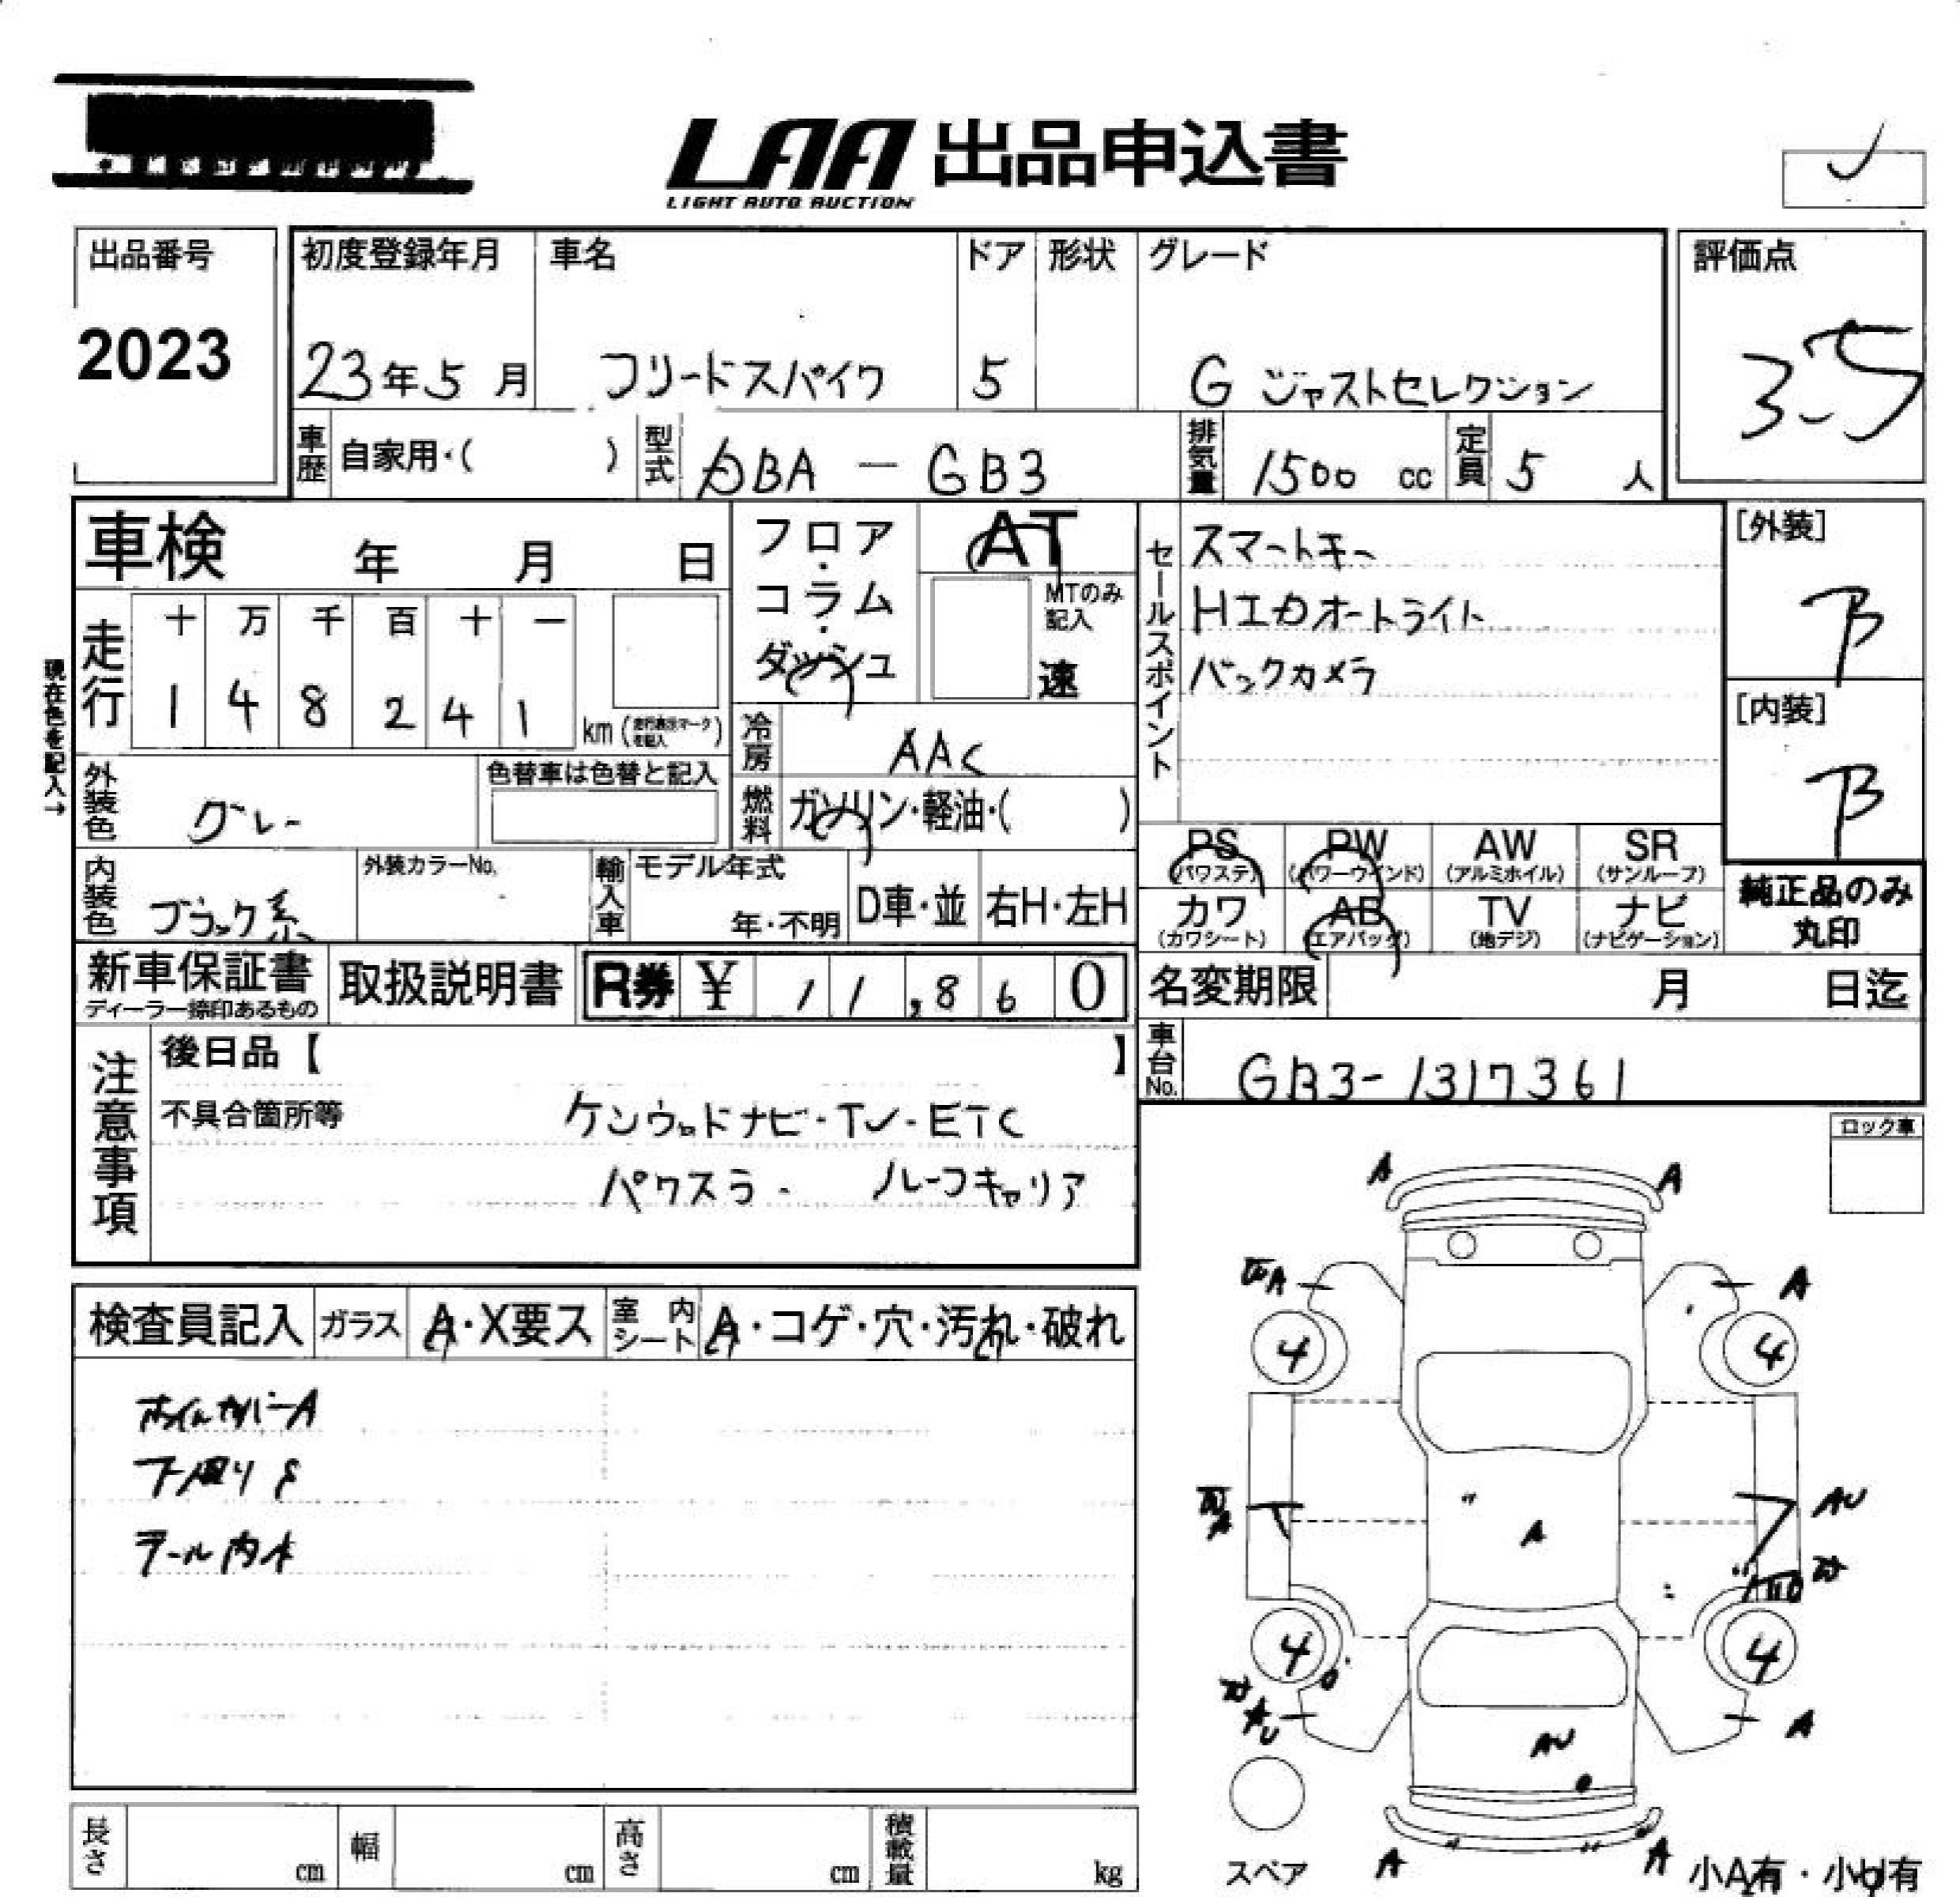 LAA 出品申込書
LIGHT AUTO AUCTION
出品番号
2023
初度登録年月
23年5月
車名
フリードスパイク
ドア
5
形状
グレード
G ジャストセレクション
評価点
3.5
車歴
自家用・( )
型式
DBA - GB3
排気量
1500 cc
定員
5 人
車検 年 月 日
フロア・コラム・ダッシュ
AT
MTのみ記入
速
セールスポイント
スマートキー
HIDオートライト
バックカメラ
[外装]
B
[内装]
B
現在色を記入→
走行
十 万 千 百 十 一
1 4 8 2 4 1
km (走行表示マークを記入)
冷房
AAC
外装色
グレー
色替車は色替と記入
燃料
ガソリン・軽油・( )
PS (パワステ)
PW (パワーウインド)
AW (アルミホイル)
SR (サンルーフ)
カワ (カワシート)
AB (エアバッグ)
TV (地デジ)
ナビ (ナビゲーション)
純正品のみ
丸印
内装色
ブラック系
外装カラーNo.
輸入車
モデル年式
年・不明
D車・並
右H・左H
新車保証書
ディーラー捺印あるもの
取扱説明書
R券 ¥ 11,860
名変期限 月 日迄
車台No.
GB3-1317361
注意事項
後日品【 】
不具合箇所等
ケンウッドナビ・TV・ETC
パワスラ・ルーフキャリア
ロック車
検査員記入
ガラス
A・X要ス
室内シート
A・コゲ・穴・汚れ・破れ
ホイルカバーA
下周りS
テール内水
A A
A A
4 4
AU
A
4 4
A
AU
A A
スペア
小A有・小U有
長さ cm
幅 cm
高さ cm
積載量 kg